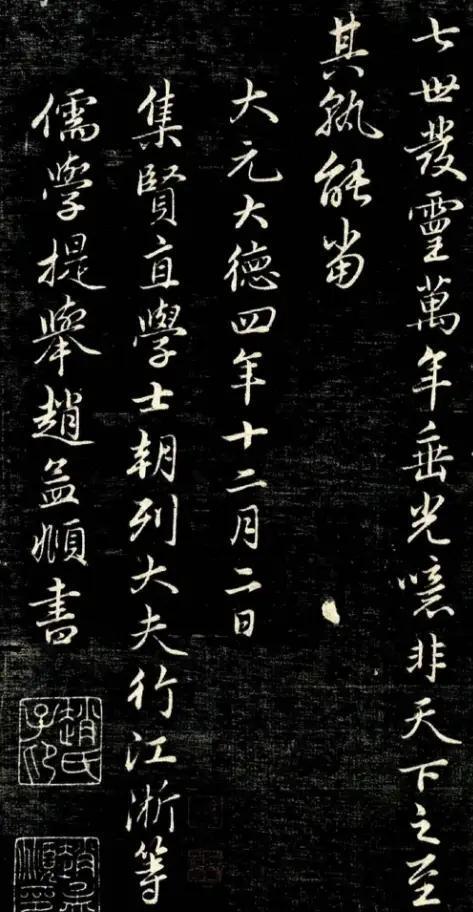 七世發靈萬年垂光噫非天下之至
其孰能當
大元大德四年十二月二日
集賢直學士朝列大夫行江浙等
儒學提舉趙孟頫書
趙氏子昂